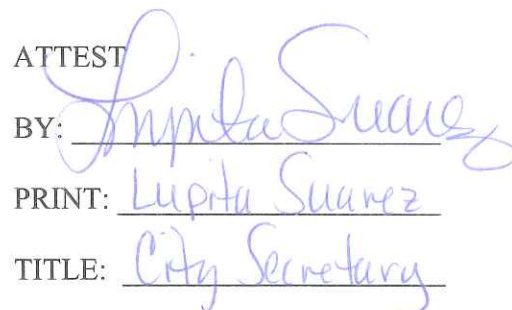 ATTEST
BY: Lupita Suarez
PRINT: Lupita Suarez
TITLE: City Secretary